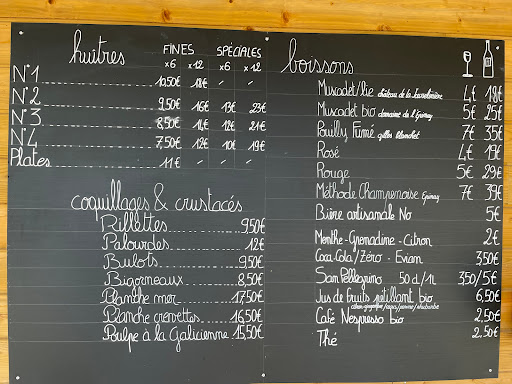 huîtres FINES SPÉCIALES
x6 x12 x6 x12
N°1 10,50€ 18€ - -
N°2 9,50€ 16€ 13€ 23€
N°3 8,50€ 14€ 12€ 21€
N°4 7,50€ 12€ 10€ 19€
Plates 11€ - - -
coquillages & crustacés
Rillettes 9,50€
Palourdes 12€
Bulots 9,50€
Bigorneaux 8,50€
Planche mer 17,50€
Planche crevettes 16,50€
Poulpe à la Galicienne 15,50€
boissons
Muscadet/lie château de la 4€ 18€
Muscadet bio domaine de l'Epinay 5€ 25€
Pouilly Fumé gilles blanchet 7€ 35€
Rosé 4€ 19€
Rouge 5€ 29€
Méthode Champenoise Epinay 7€ 39€
Bière artisanale No 5€
Menthe - Grenadine - Citron 2€
Coca Cola/Zéro - Evian 3,50€
San Pellegrino 50cl/1L 3,50/5€
Jus de fruits pétillant bio 6,50€
Café Nespresso bio 2,50€
Thé 2,50€